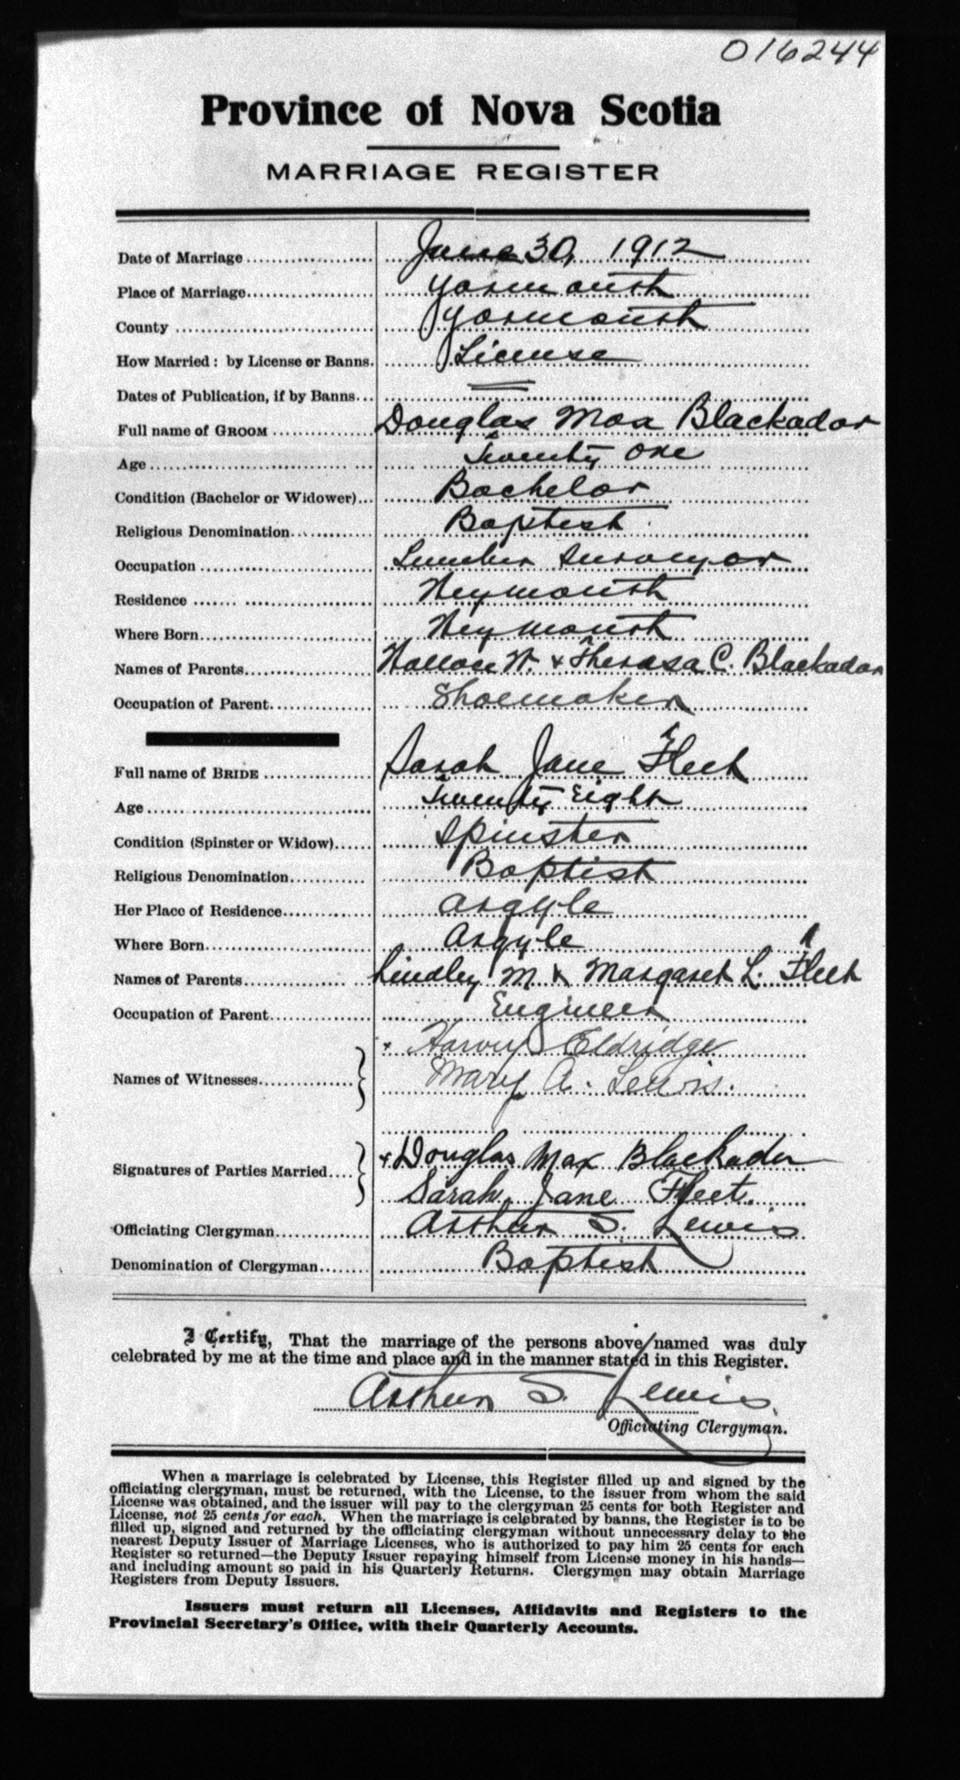 016244
Province of Nova Scotia
MARRIAGE REGISTER
Date of Marriage June 30, 1912
Place of Marriage Yarmouth
County Yarmouth
How Married: by License or Banns. License
Dates of Publication, if by Banns
Full name of GROOM Douglas Max Blackador
Age Twenty one
Condition (Bachelor or Widower) Bachelor
Religious Denomination Baptist
Occupation Lumber Surveyor
Residence Weymouth
Where Born Weymouth
Names of Parents Wallace W. & Theresa C. Blackador
Occupation of Parent Shoemaker
Full name of BRIDE Sarah Jane Fleet
Age Twenty Eight
Condition (Spinster or Widow) Spinster
Religious Denomination Baptist
Her Place of Residence Argyle
Where Born Argyle
Names of Parents Lindley M & Margaret L. Fleet
Occupation of Parent Engineer
Names of Witnesses Harvey Eldridge
Mary A. Lewis.
Signatures of Parties Married Douglas Max Blackader
Sarah Jane Fleet.
Officiating Clergyman Arthur S. Lewis
Denomination of Clergyman Baptist
I Certify, That the marriage of the persons above named was duly
celebrated by me at the time and place and in the manner stated in this Register.
Arthur S. Lewis
Officiating Clergyman.
When a marriage is celebrated by License, this Register filled up and signed by the
officiating clergyman, must be returned, with the License, to the issuer from whom the said
License was obtained, and the issuer will pay to the clergyman 25 cents for both Register and
License, not 25 cents for each. When the marriage is celebrated by banns, the Register is to be
filled up, signed and returned by the officiating clergyman without unnecessary delay to the
nearest Deputy Issuer of Marriage Licenses, who is authorized to pay him 25 cents for each
Register so returned—the Deputy Issuer repaying himself from License money in his hands—
and including amount so paid in his Quarterly Returns. Clergymen may obtain Marriage
Registers from Deputy Issuers.
Issuers must return all Licenses, Affidavits and Registers to the
Provincial Secretary's Office, with their Quarterly Accounts.